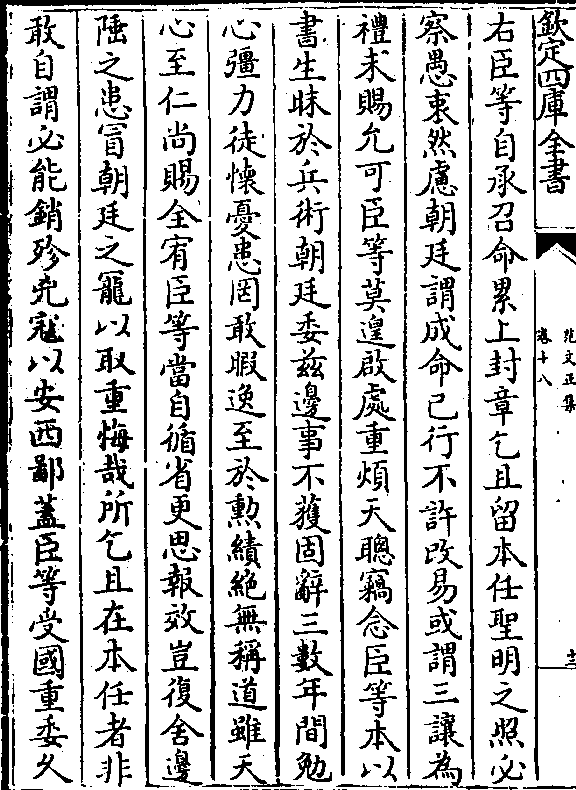 欽定四庫全書
范文正集
卷十八
十三
右臣等自承召命累上封章乞且留本任聖明之照必
察愚衷然慮朝廷謂成命已行不許改易或謂三讓為
禮未賜允可臣等莫遑啟處重煩天聰竊念臣等本以
書生昧於兵術朝廷委兹邊事不獲固辭三數年間勉
心彊力徒懐憂患罔敢暇逸至於勲績絶無稱道雖天
心至仁尚賜全宥臣等當自循省更思報效豈復舍邊
陲之患冒朝廷之寵以取重悔哉所乞且在本任者非
敢自謂必能銷殄兇冦以安西鄙蓋臣等受國重委久